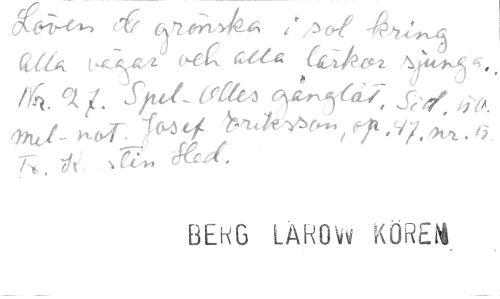 Löven de grönska i sol kring
alla vägar och alla lärkor sjunga..
Nr. 27. Spel-Olles gånglåt. Sid. 50.
mel-not. Josef Eriksson, op. 47. nr. 5.
Tx. Kerstin Hed.
BERG LAROW KÖREN